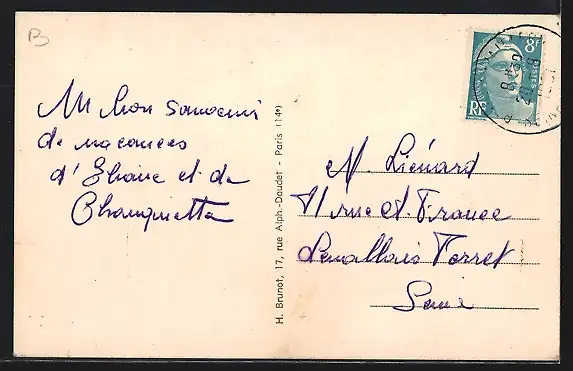 B
Un bon souvenir
de vacances
d'Eliane et de
Changuietta
H. Brunot, 17, rue Alph.-Daudet - Paris (14e)
8F
POSTES
RF
M. Liénard
11 rue A. France
Levallois Perret
Seine